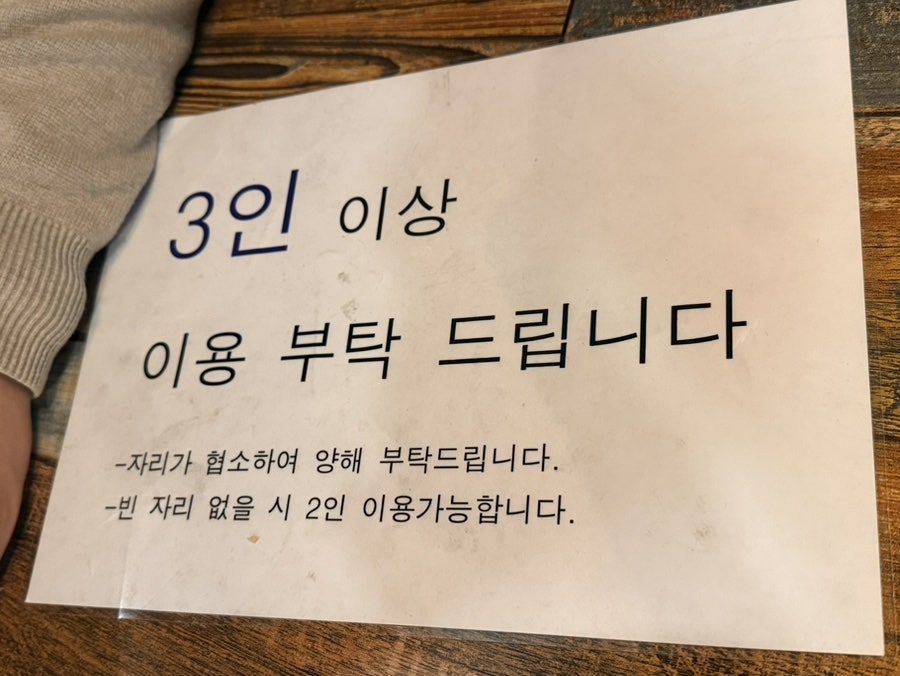 3인 이상
이용 부탁 드립니다
-자리가 협소하여 양해 부탁드립니다.
-빈 자리 없을 시 2인 이용가능합니다.